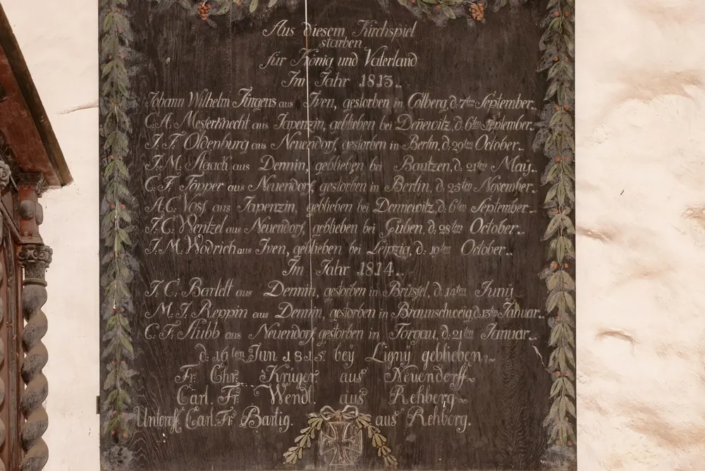 Aus diesem Kirchspiel
starben
für König und Vaterland
Im Jahr 1813.
Johann Wilhelm Jürgens aus Iven, gestorben in Colberg, d. 7ten September.
C. A. Mesterknecht aus Japenzin, geblieben bei Denewitz, d. 6ten September.
J. F. Oldenburg aus Neuendorf, gestorben in Berlin, d. 29ten October.
J. M. Staack aus Dennin, geblieben bei Bautzen, d. 21ten May.
C. F. Töpper aus Neuendorf, gestorben in Berlin, d. 25ten November.
A. C. Voss aus Japenzin, geblieben bei Dennewitz, d. 6ten September.
J. C. Wentzel aus Neuendorf, geblieben bei Guben, d. 28ten October.
J. M. Wodrich aus Iven, geblieben bei Leipzig, d. 19ten October.
Im Jahr 1814.
J. C. Bartelt aus Dennin, gestorben in Brüssel, d. 14ten Juny.
M. F. Reppin aus Dennin, gestorben in Braunschweig, d. 13ten Januar.
C. F. Stubb aus Neuendorf, gestorben in Torgau, d. 21ten Januar.
d. 16ten Jun 1815. bey Ligny geblieben
Fr. Chr. Krüger. aus Neuendorff
Carl. Fr. Wendl. aus Rehberg
Unteroff. Carl. Fr. Bartig. aus Rehberg.